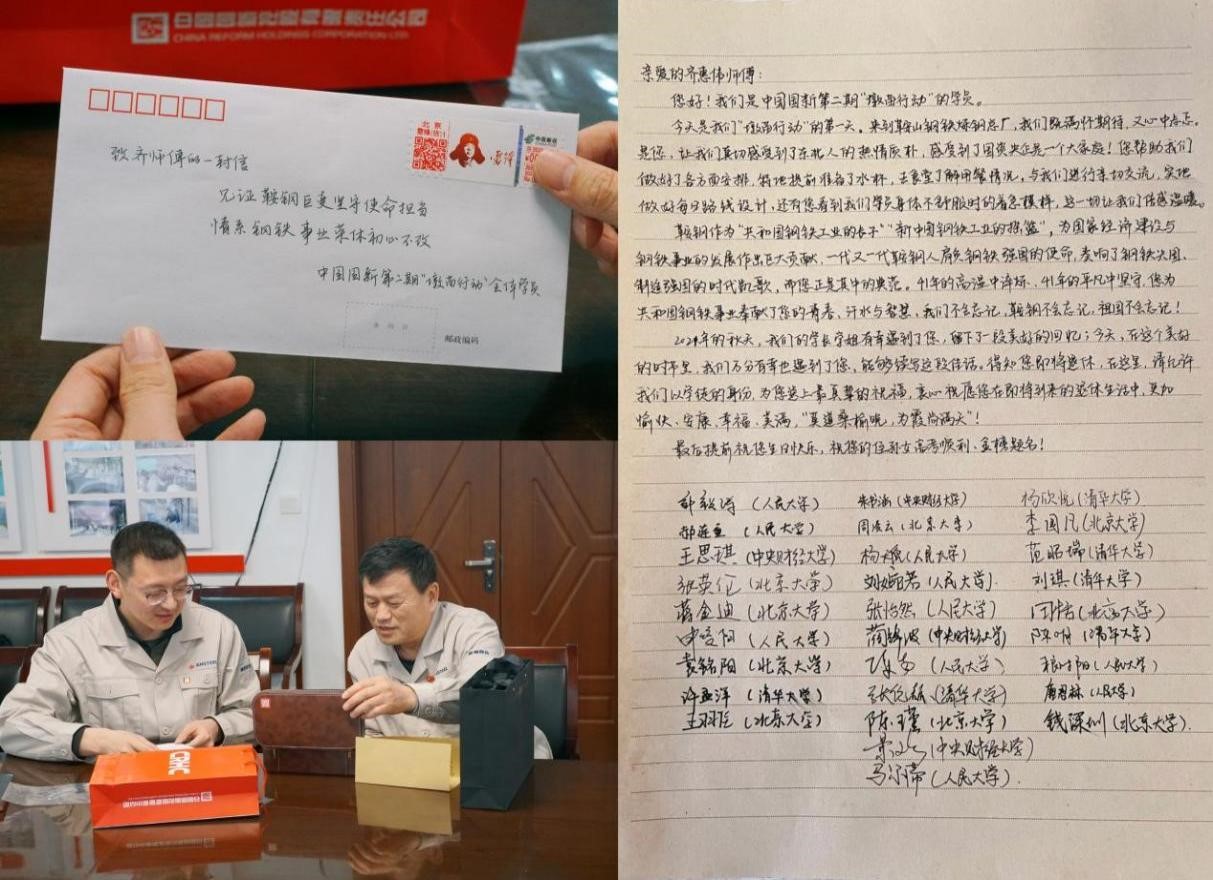 中国国新控股有限责任公司
CHINA REFORM HOLDINGS CORPORATION LTD.
北京
中国邮政
致齐师傅的一封信
见证鞍钢巨变坚守使命担当
情系钢铁事业荣休初心不改
中国国新第二期“墩苗行动”全体学员
邮政编码
CRHC
中国国新控股有限责任公司
亲爱的齐惠伟师傅：
您好！我们是中国国新第二期“墩苗行动”的学员。
今天是我们“墩苗行动”的第一天。来到鞍山钢铁炼钢总厂，我们既满怀期待，又心中忐忑。
是您，让我们真切感受到了东北人的热情质朴，感受到了国资央企是一个大家庭！您帮助我们
做好了各方面安排，特地提前准备了水杯，去食堂了解用餐情况，与我们进行亲切交流，实地
做好每日路线设计，还有您看到我们学员身体不舒服时的着急模样，这一切让我们倍感温暖。
鞍钢作为“共和国钢铁工业的长子”“新中国钢铁工业的摇篮”，为国家经济建设与
钢铁事业的发展作出巨大贡献，一代又一代鞍钢人肩负钢铁强国的使命，奏响了钢铁大国、
制造强国的时代凯歌，而您正是其中的典范。41年的高温中淬炼，41年的平凡中坚守，您为
共和国钢铁事业奉献了您的青春、汗水与智慧，我们不会忘记，鞍钢不会忘记，祖国不会忘记！
2024年的秋天，我们的学长学姐有幸遇到了您，留下了一段美好的回忆；今天，在这个美好
的时节里，我们万分有幸也遇到了您，能够续写这段佳话。得知您即将退休，在这里，请允许
我们以学徒的身份，为您送上最真挚的祝福，衷心祝愿您在即将到来的退休生活中，更加
愉快、安康、幸福、美满，“莫道桑榆晚，为霞尚满天”！
最后提前祝您生日快乐，祝您的侄孙女高考顺利、金榜题名！
（人民大学） （中央财经大学） 杨欣悦（清华大学）
（人民大学） 周凌云（北京大学） 李国凡（北京大学）
王思琪（中央财经大学） （人民大学） 范昭瑞（清华大学）
（北京大学） （人民大学） 刘琪（清华大学）
蒋金迪（北京大学） 张怡然（人民大学） （北京大学）
（人民大学） （中央财经大学） （清华大学）
袁铭阳（北京大学） （人民大学） （人民大学）
许亚洋（清华大学） （清华大学） （人民大学）
王羽臣（北京大学） 陈瑾（北京大学） 钱深圳（北京大学）
（中央财经大学）
（人民大学）